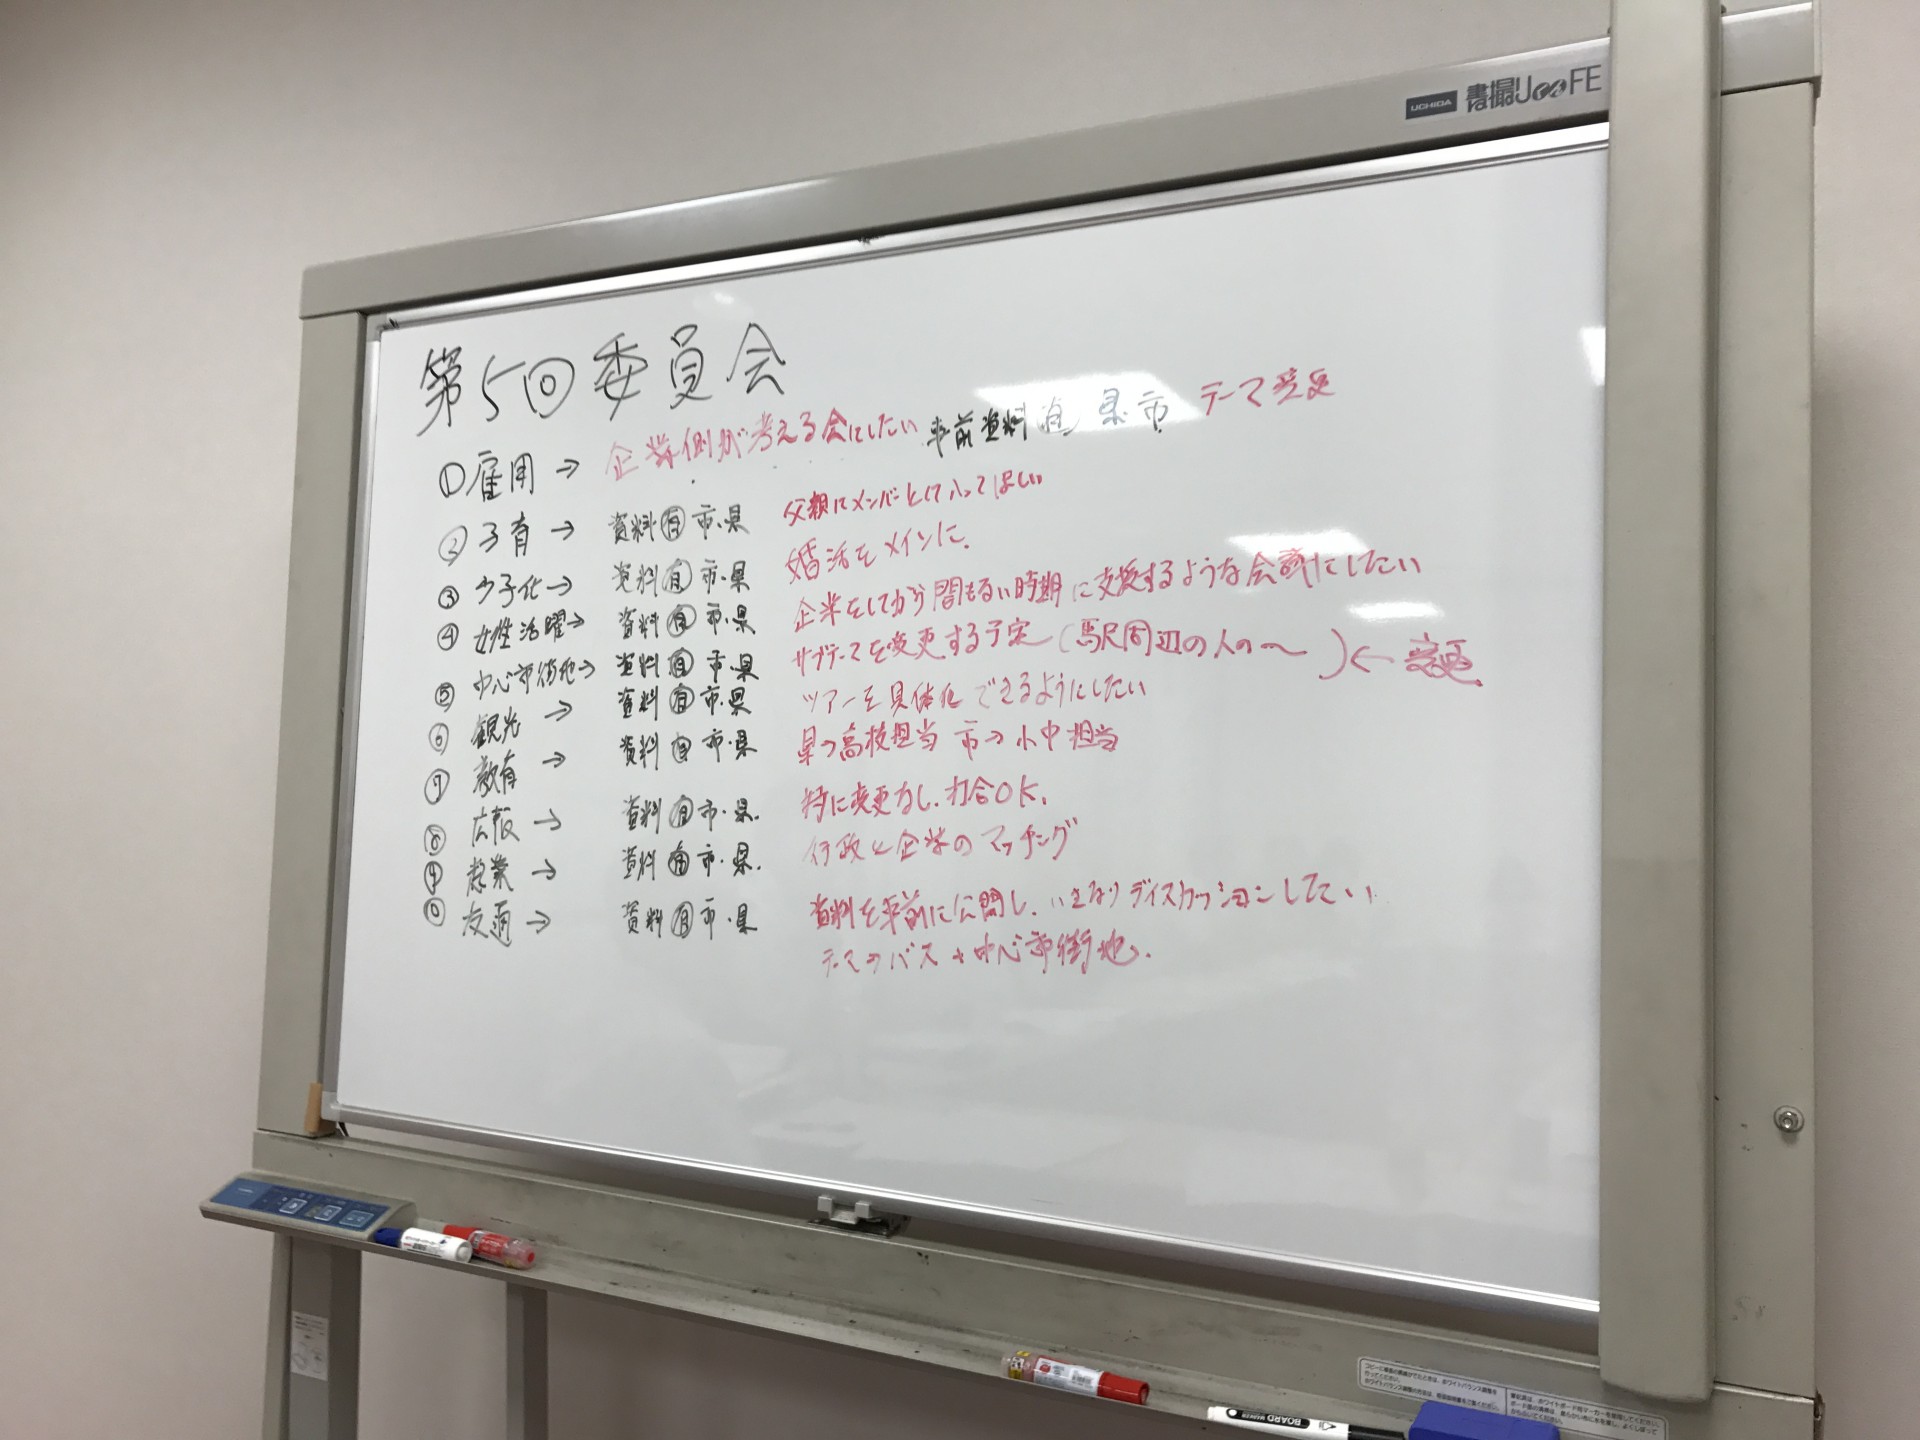 UCHIDA 書撮りcaFE
第5回委員会
①雇用→ 企業側が考える会にしたい 事前資料有 県・市 テーマ変更
②子育→ 資料有 市・県 父親にメンバーとして入ってほしい
③少子化→ 資料有 市・県 婚活をメインに.
④女性活躍→ 資料有 市・県 企業をしてから間もない時期に支援するような会議にしたい
⑤中心市街地→ 資料有 市・県 サブテーマを変更する予定(駅周辺の人の〜 )←変更
⑥観光→ 資料有 市・県 ツアーを具体化できるようにしたい
⑦教育→ 資料有 市・県 県→高校担当 市→小中担当
⑧広報→ 資料有 市・県. 特に変更なし.打合OK.
⑨農業→ 資料有 市・県. 行政と企業のマッチング
⑩交通→ 資料有 市・県 資料を事前に公開し.いきなりディスカッションしたい
テーマ→バス+中心市街地.
BOARD MARKER